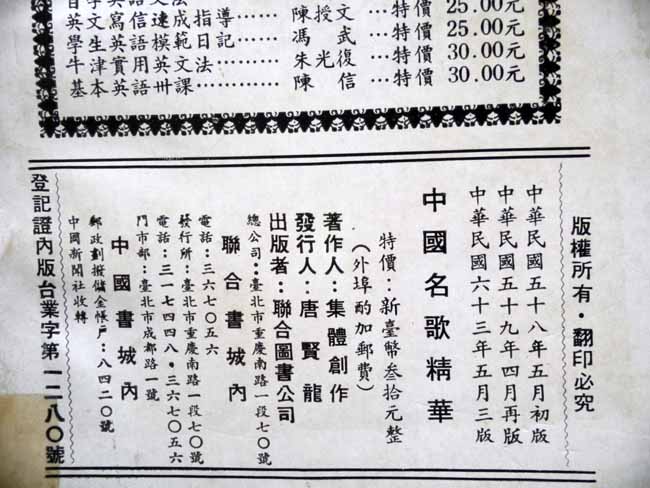 速成指導……陳授文…特價 25.00元
學生英語模範日記……馮 武…特價 25.00元
牛津實用英文法……朱光復…特價 30.00元
基本英語卅課……陳 信…特價 30.00元
版權所有·翻印必究
中華民國五十八年五月初版
中華民國五十九年四月再版
中華民國六十三年五月三版
中國名歌精華
特價：新臺幣叁拾元整
（外埠酌加郵費）
著作人：集體創作
發行人：唐賢龍
出版者：聯合圖書公司
總公司：臺北市重慶南路一段七〇號
聯合書城內
電話：三六七〇五六
發行所：臺北市重慶南路一段七〇號
電話：三一七四四八·三六七〇五六
門市部：臺北市成都路一號
中國書城內
郵政劃撥儲金帳戶：八四二〇號
中國新聞社收轉
登記證內版台業字第一二八〇號